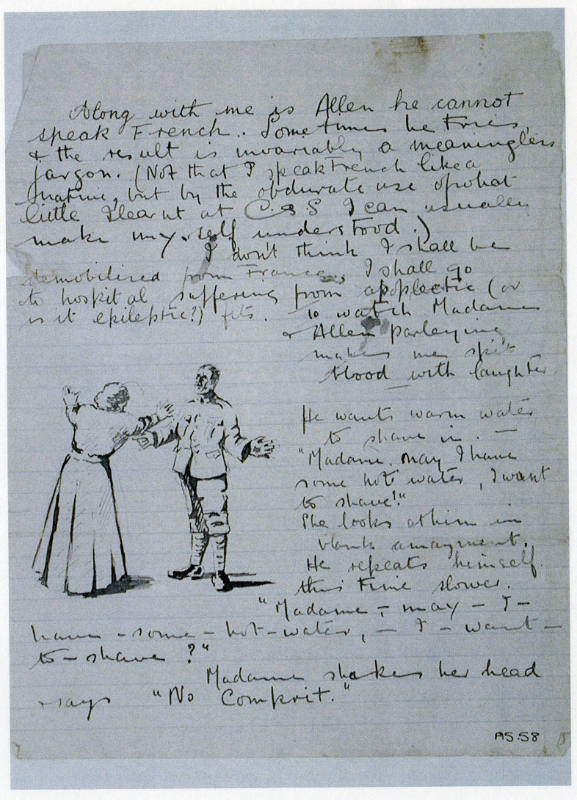 Along with me is Allen he cannot
speak French. Sometimes he tries,
& the result is invariably a meaningless
jargon. (Not that I speak French like a
native, but by the obdurate use of what
little I learnt at C & S I can usually
make myself understood.)
I don't think I shall be
demobilized from France, I shall go
to hospital suffering from apoplectic (or
is it epileptic?) fits.
To watch Madame
& Allen parleying
makes me spit
blood with laughter
He wants warm water
to shave in. —
"Madame. may I have
some hot water, I want
to shave!"
She looks at him in
blank amazement.
He repeats himself
this time slower.
"Madame – may – I –
have – some – hot – water, – I – want –
to – shave?"
Madame shakes her head
& says "No Comprit."
AS.58